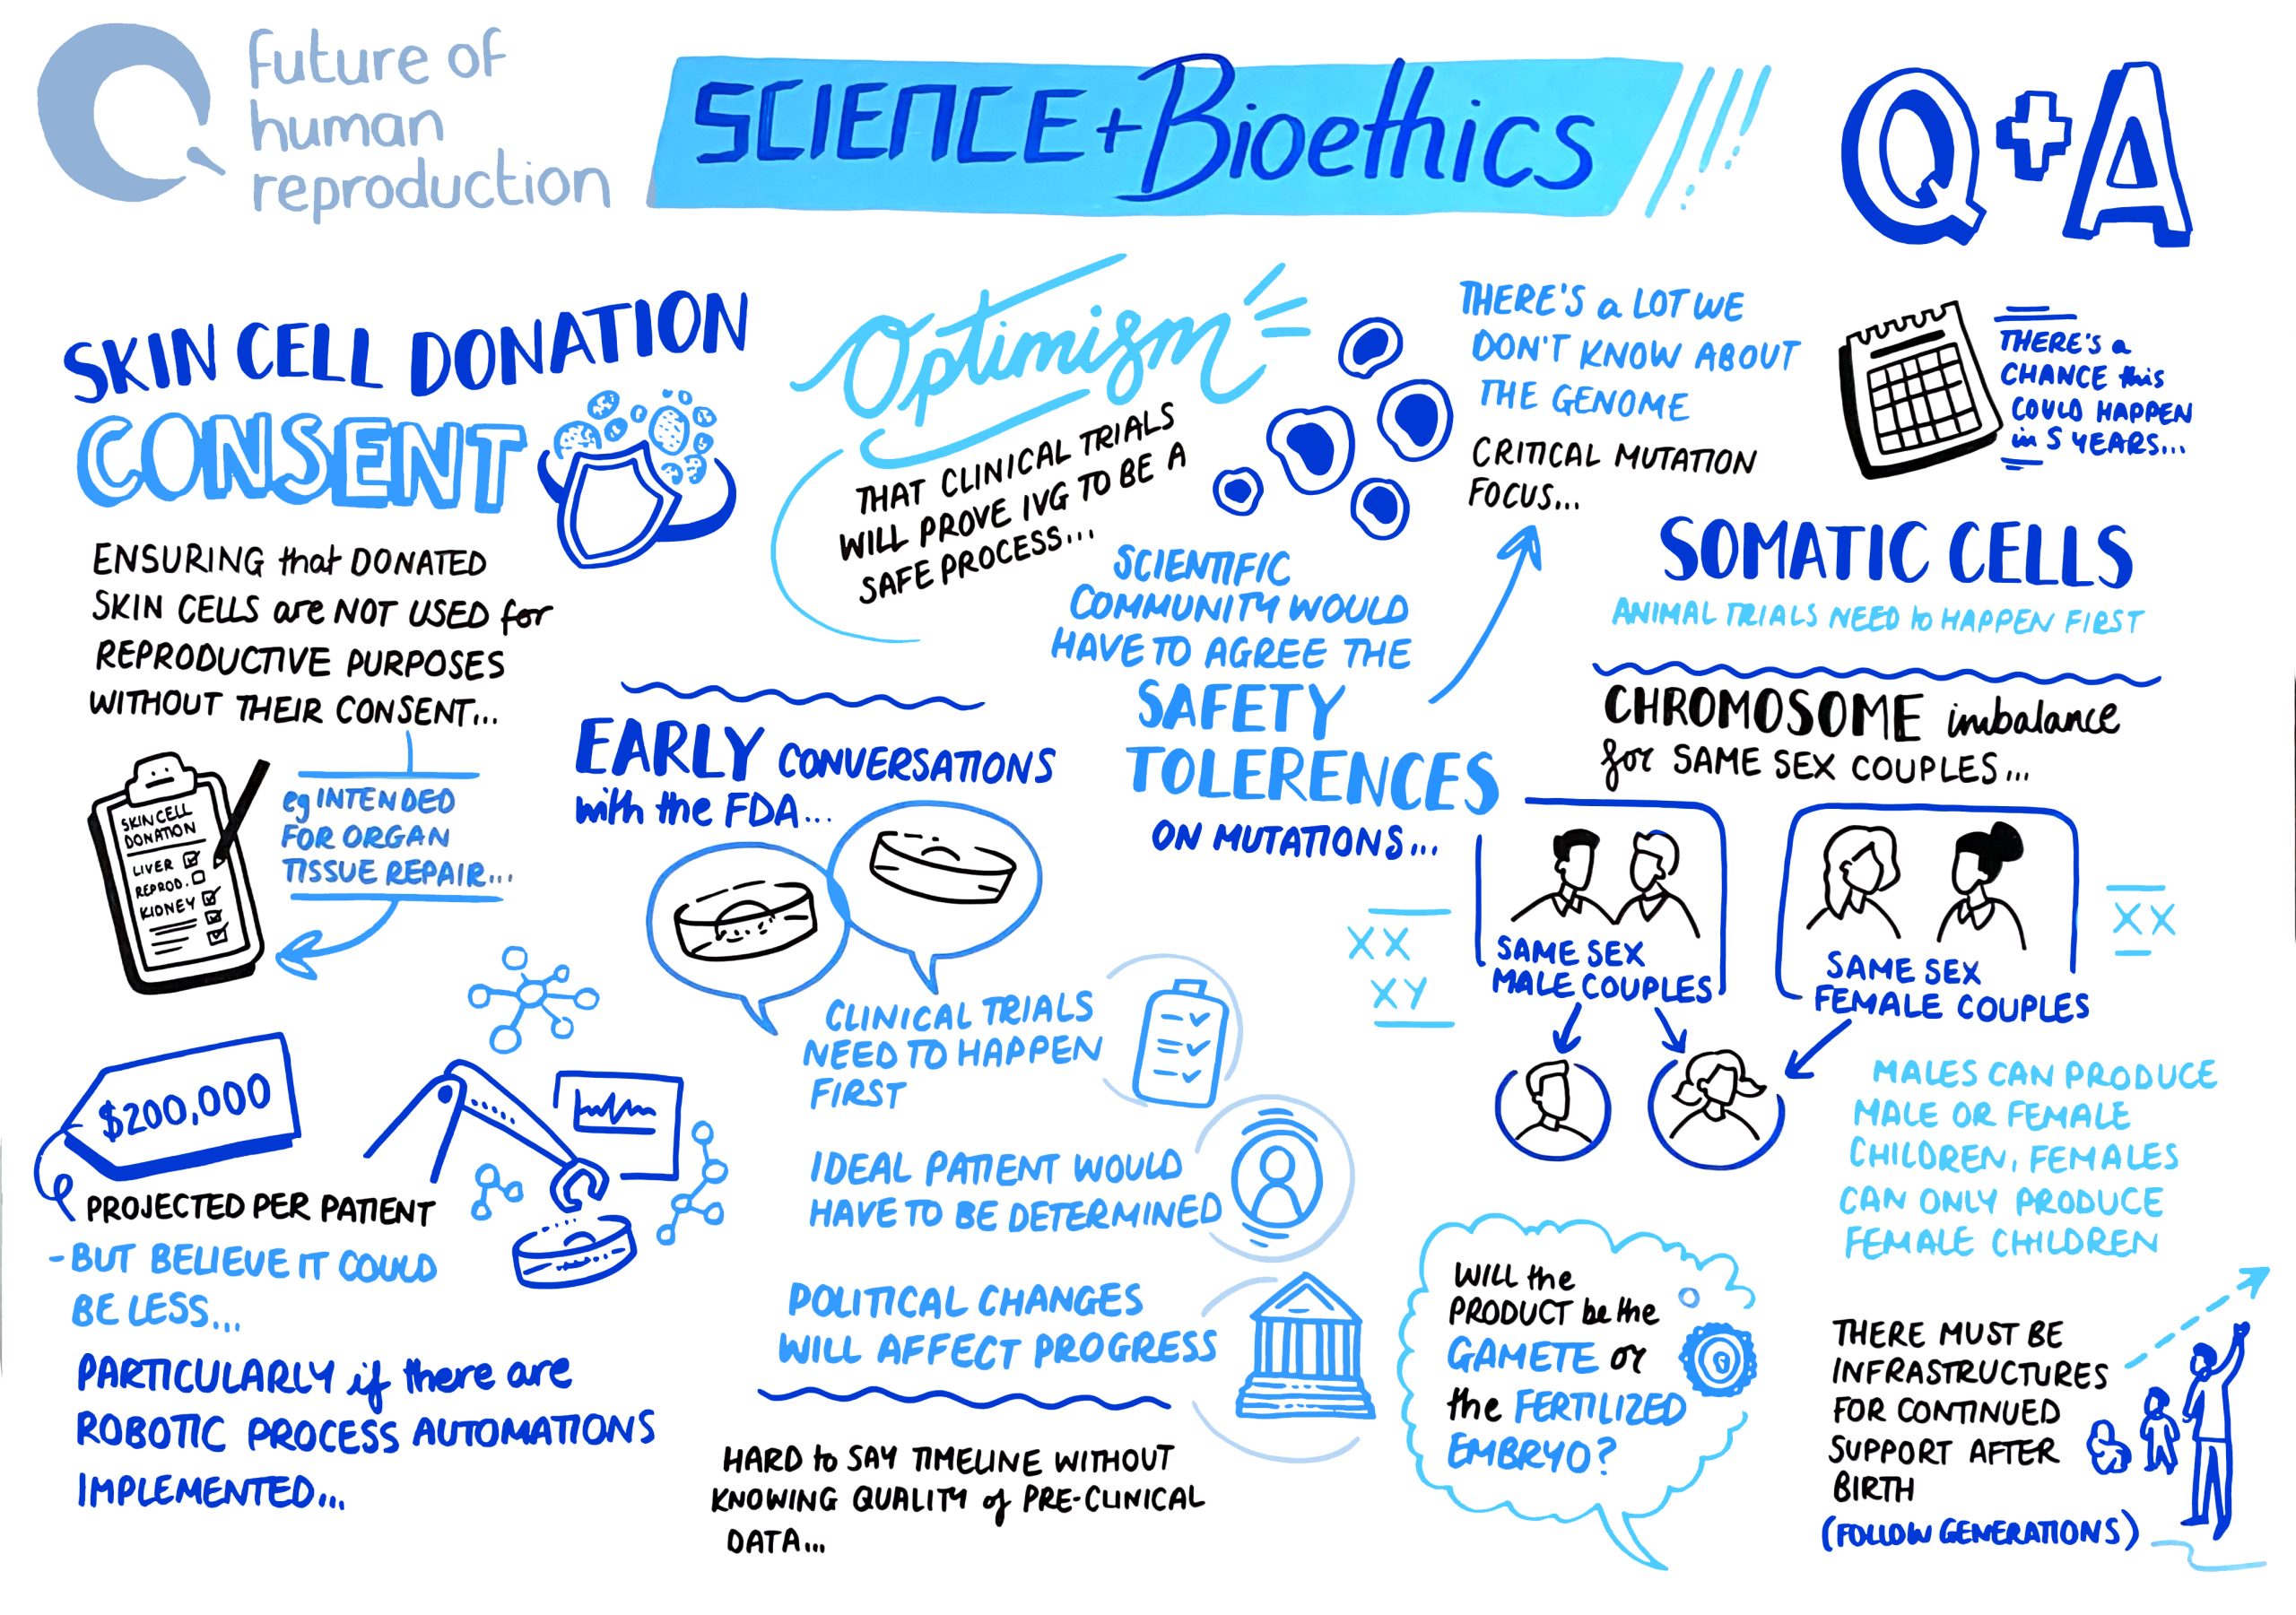 future of
human
reproduction
SCIENCE + Bioethics
Q+A
SKIN CELL DONATION
CONSENT
ENSURING that DONATED
SKIN CELLS are NOT USED for
REPRODUCTIVE PURPOSES
WITHOUT THEIR CONSENT...
eg INTENDED
FOR ORGAN
TISSUE REPAIR...
SKIN CELL
DONATION
LIVER
REPROD.
KIDNEY
$200,000
PROJECTED PER PATIENT
- BUT BELIEVE IT COULD
BE LESS...
PARTICULARLY if there are
ROBOTIC PROCESS AUTOMATIONS
IMPLEMENTED...
Optimism
THAT CLINICAL TRIALS
WILL PROVE IVG TO BE A
SAFE PROCESS...
EARLY CONVERSATIONS
with the FDA...
CLINICAL TRIALS
NEED TO HAPPEN
FIRST
IDEAL PATIENT WOULD
HAVE TO BE DETERMINED
POLITICAL CHANGES
WILL AFFECT PROGRESS
HARD to SAY TIMELINE WITHOUT
KNOWING QUALITY of PRE-CLINICAL
DATA...
SCIENTIFIC
COMMUNITY WOULD
HAVE TO AGREE THE
SAFETY
TOLERENCES
ON MUTATIONS...
THERE'S a LOT WE
DON'T KNOW ABOUT
THE GENOME
CRITICAL MUTATION
FOCUS...
THERE'S a
CHANCE this
COULD HAPPEN
in 5 YEARS...
SOMATIC CELLS
ANIMAL TRIALS NEED to HAPPEN FIRST
CHROMOSOME imbalance
for SAME SEX COUPLES...
XX
XY
SAME SEX
MALE COUPLES
SAME SEX
FEMALE COUPLES
XX
MALES CAN PRODUCE
MALE OR FEMALE
CHILDREN, FEMALES
CAN ONLY PRODUCE
FEMALE CHILDREN
WILL the
PRODUCT be the
GAMETE or
the FERTILIZED
EMBRYO?
THERE MUST BE
INFRASTRUCTURES
FOR CONTINUED
SUPPORT AFTER
BIRTH
(FOLLOW GENERATIONS)